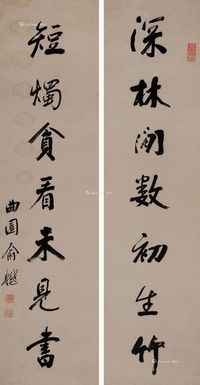 深林閒数初生竹
短燭貪看未見書
曲園俞樾